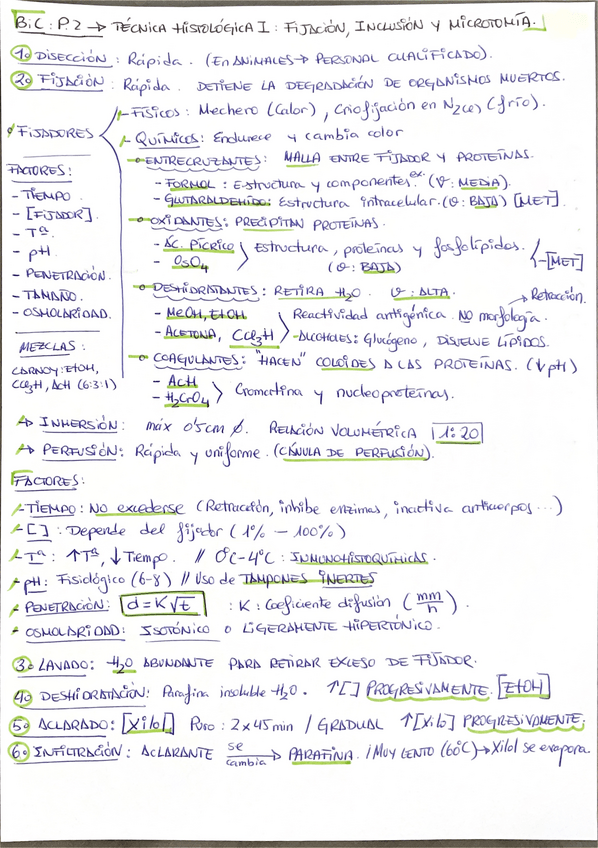 BiC: P.2 → TÉCNICA HISTOLÓGICA I: FIJACIÓN, INCLUSIÓN Y MICROTOMÍA.
1. DISECCIÓN: Rápida. (En ANIMALES → PERSONAL CUALIFICADO).
2. FIJACIÓN: Rápida. DETIENE LA DEGRADACIÓN DE ORGANISMOS MUERTOS.
- FÍSICOS: Mechero (Calor), Criofijación en N2(l) (frío).
FIJADORES
- QUÍMICOS: Endurece y cambia color
ENTRECRUZANTES: MALLA ENTRE FIJADOR Y PROTEÍNAS.
- FORMOL: Estructura y componentes ex. (ϑ: MEDIA).
- GLUTARALDEHIDO: Estructura intracelular. (ϑ: BAJA) [MET]
OXIDANTES: PRECIPITAN PROTEÍNAS.
- ÁC. PÍCRICO
- OsO4
Estructura, proteínas y fosfolípidos.
(ϑ: BAJA)
- [MET]
DESHIDRATANTES: RETIRA H2O. ϑ: ALTA.
→ Retracción.
- MeOH, EtOH
- ACETONA, CCl3H
Reactividad antigénica. NO morfología.
- ALCOHOLES: Glucógeno, DISUELVE LÍPIDOS.
COAGULANTES: "HACEN" COLOIDES A LAS PROTEÍNAS. (↓pH)
- AcH
- H2CrO4
Cromatina y nucleoproteínas.
FACTORES:
- TIEMPO
- [FIJADOR].
- Tª.
- pH.
- PENETRACIÓN.
- TAMAÑO.
- OSMOLARIDAD.
MEZCLAS:
CARNOY: EtOH,
CCl3H, AcH (6:3:1)
→ INMERSIÓN: máx 0'5cm ∅. RELACIÓN VOLUMÉTRICA 1:20
→ PERFUSIÓN: Rápida y uniforme. (CÁNULA DE PERFUSIÓN).
FACTORES:
- TIEMPO: NO excederse (Retracción, inhibe enzimas, inactiva anticuerpos...)
- [ ]: Depende del fijador (1% - 100%)
- Tª: ↑Tª, ↓Tiempo. // 0ºC-4ºC: INMUNOHISTOQUÍMICAS.
- pH: Fisiológico (6-8) // Uso de TAMPONES INERTES
- PENETRACIÓN: d = K√t : K: Coeficiente difusión (mm/h).
- OSMOLARIDAD: ISOTÓNICO o LIGERAMENTE HIPERTÓNICO.
3. LAVADO: H2O ABUNDANTE PARA RETIRAR EXCESO DE FIJADOR.
4. DESHIDRATACIÓN: Parafina insoluble H2O. ↑[ ] PROGRESIVAMENTE. [EtOH]
5. ACLARADO: [Xilol] Puro: 2x45min / GRADUAL ↑[Xilol] PROGRESIVAMENTE.
6. INFILTRACIÓN: ACLARANTE se cambia → PARAFINA. ¡MUY LENTO (60ºC) → Xilol se evapora.